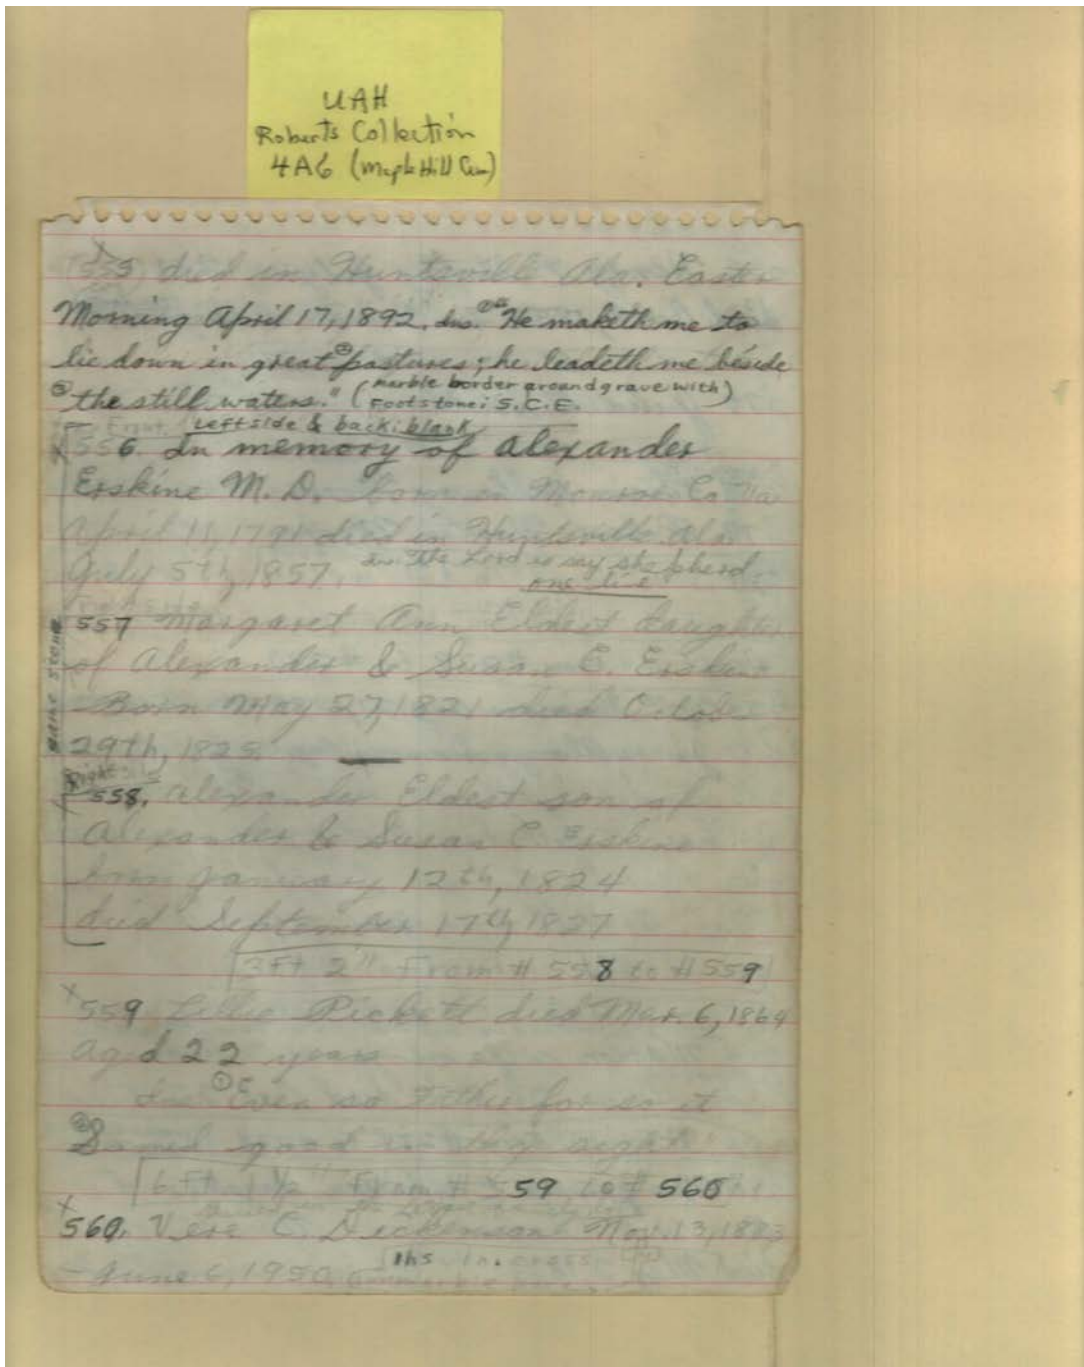 UAH
Roberts Collection
4A6 (Maple Hill Cem)
died in Huntsville Ala. Easter
Morning April 17, 1892. Ins. "He maketh me to
lie down in great pastures; he leadeth me beside
the still waters." (marble border around grave with)
Footstone: S.C.E.
Left side & back: blank
556. In memory of Alexander
Erskine M. D. born in Monroe Co Va
April 11, 1791 died in Huntsville Ala
July 5th, 1857. Ins. The Lord is my shepherd.
one line
same stone
557 Margaret Ann Eldest daughter
of Alexander & Susan C. Erskine
Born May 27, 1821 died October
29th,
Right side
558. Alexander Eldest son of
Alexander & Susan C. Erskine
born January 12th, 1824
died September 17th 1827
3 Ft 2" From # 558 to # 559
x 559 Lillie Pickett died Mar. 6, 1864
aged 22 years
Ins Even so Father for so it
good in thy sight
6 Ft 1 1/2" From # 559 to # 560
x 560. Vera C. Dickenson Nov. 13,
ihs in cross
- June 6, 1950